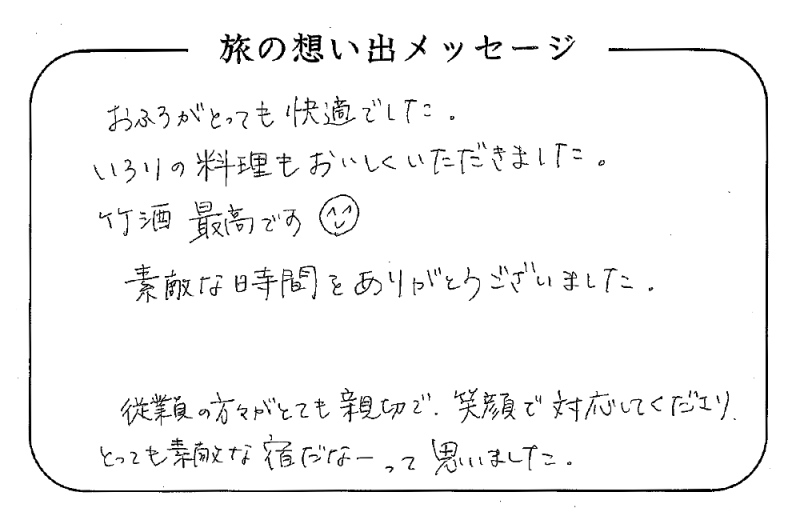 旅の想い出メッセージ
おふろがとっても快適でした。
いろりの料理もおいしくいただきました。
竹酒 最高です
素敵な時間をありがとうございました。
従業員の方々がとても親切で、笑顔で対応してくださり、
とっても素敵な宿だなーって思いました。